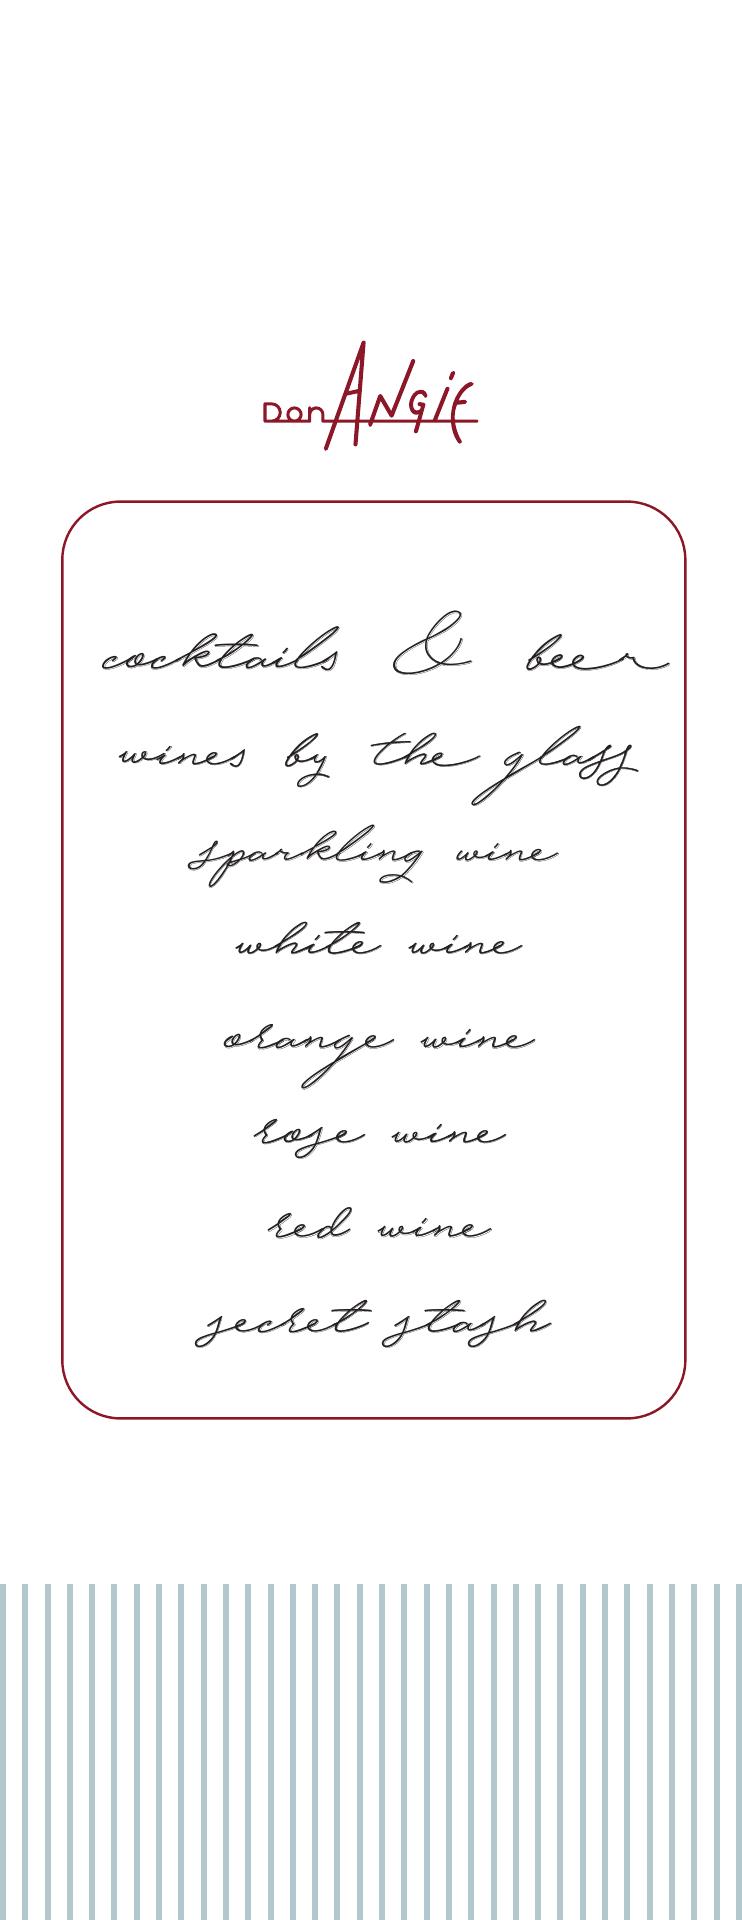 Don ANGIE
cocktails & beer
wines by the glass
sparkling wine
white wine
orange wine
rose wine
red wine
secret stash